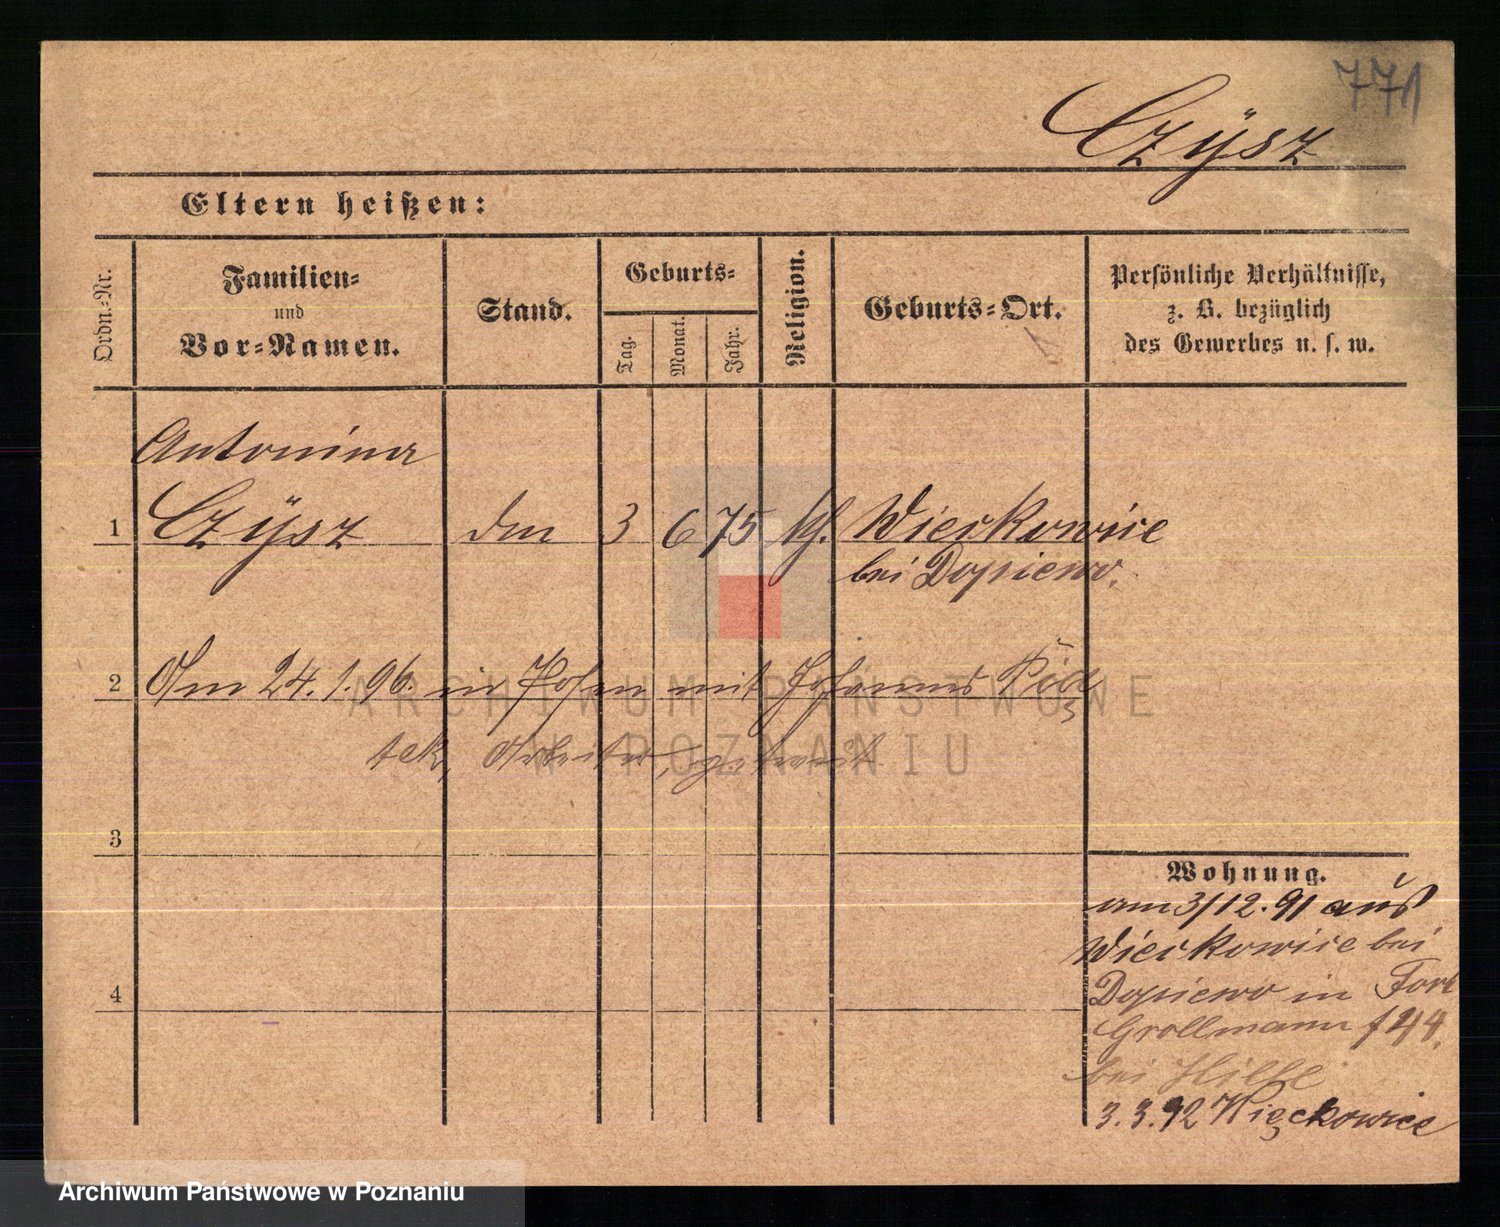 771
Czÿsz
Eltern heißen:
Ordn.-Nr.
Familien-
und
Vor-Namen.
Stand.
Geburts-
Tag.
Monat.
Jahr.
Religion.
Geburts-Ort.
Persönliche Verhältnisse,
z. B. bezüglich
des Gewerbes u. s. w.
Antonina
1 Czÿsz 3 6 75 kth. Wieckowice
bei Dopiewo.
2 Am 24.1.96. in Posen mit Johannes
tek, Arbeiter,
3
Wohnung.
am 3/12.91 aus
Wieckowice bei
Dopiewo in Fort
4
Grollmann
bei
3.3.92 Więckowice
ARCHIWUM PAŃSTWOWE
W POZNANIU
Archiwum Państwowe w Poznaniu